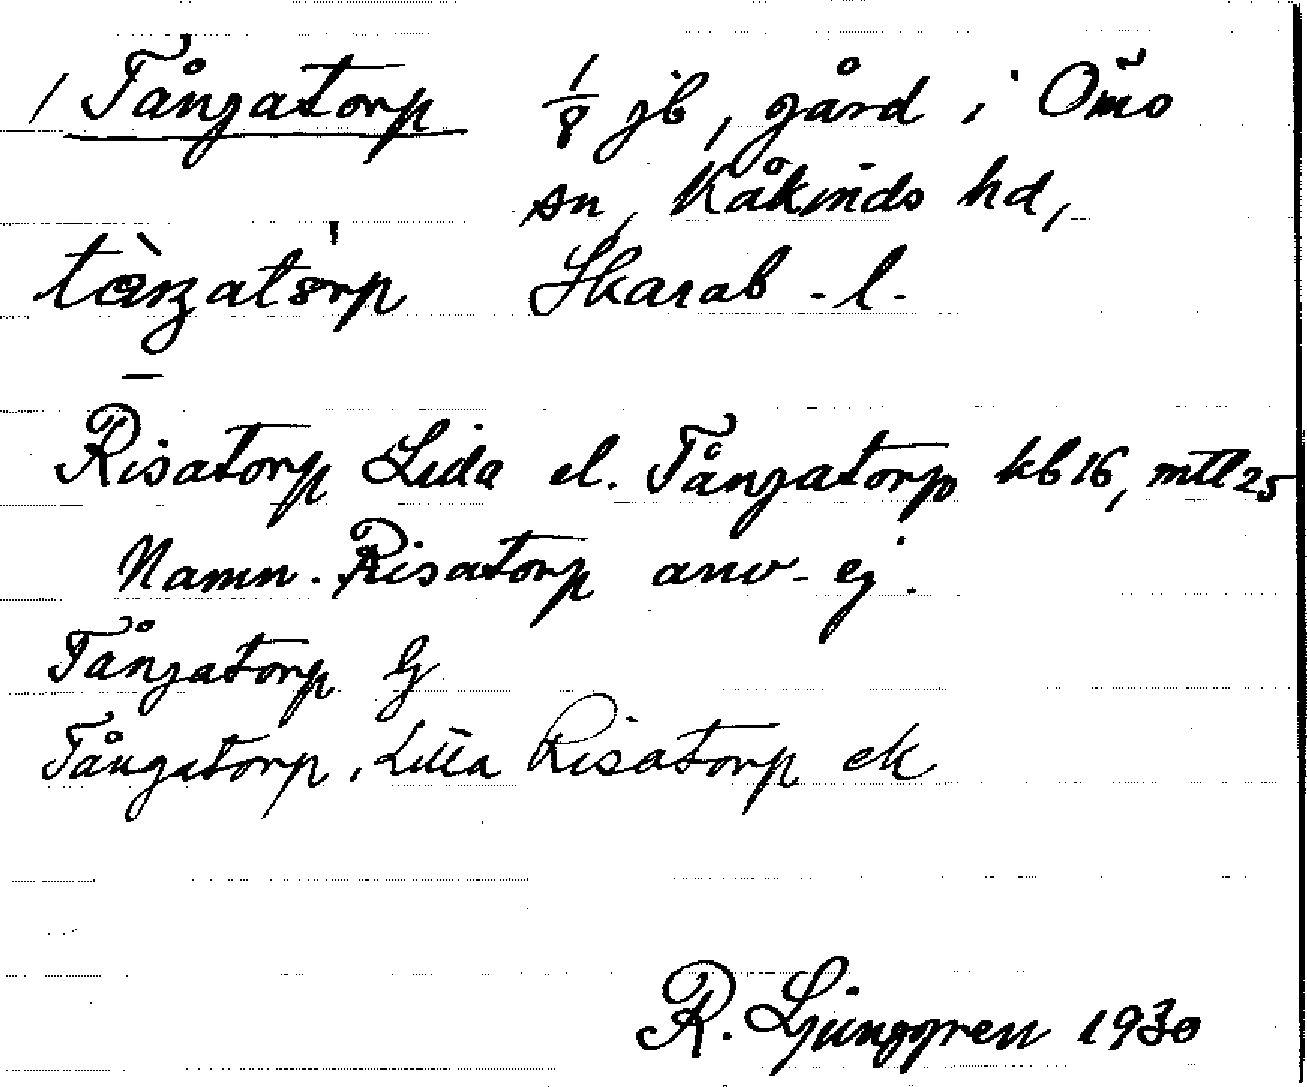 / Tångatorp 1/8 jb, gård i Ömo
sn, Kåkinds hd,
Skarab. l.
Risatorp Lida el. Tångatorp kb 16, mtl 25
Namn. Risatorp anv. ej.
Tångatorp G
Tångatorp, Lilla Risatorp ek
R. Ljunggren 1930